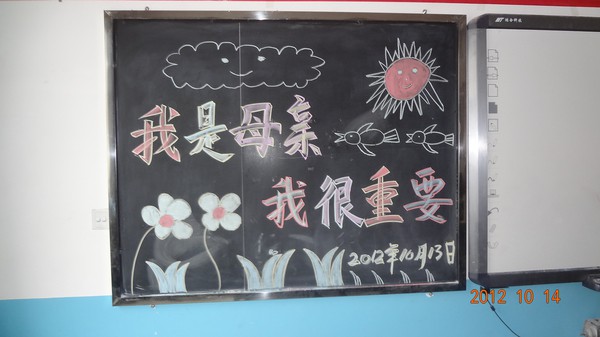 我是母亲
我很重要
2012年10月13日
2012 10 14